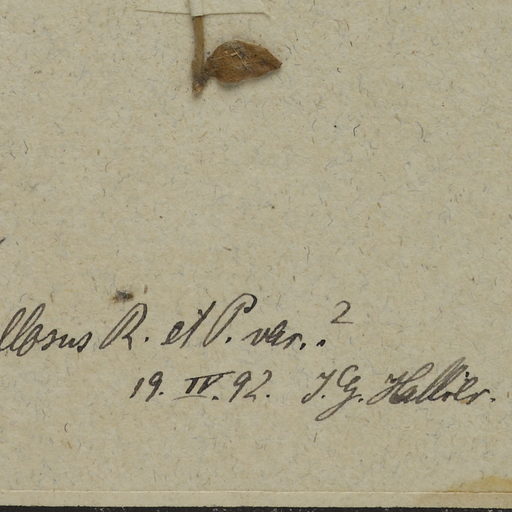 llosus R. et P. var..2
19. IV. 92. J. G. Hallier.